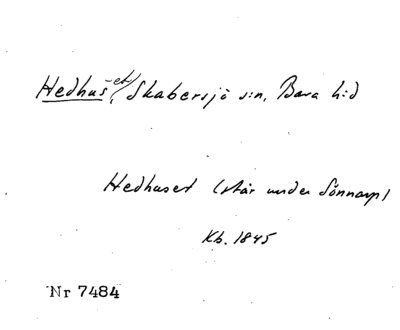 Hedhus-et, Skabersjö s:n, Bara h:d
Hedhuset (står under Sönnarp)
Kb. 1845
Nr 7484